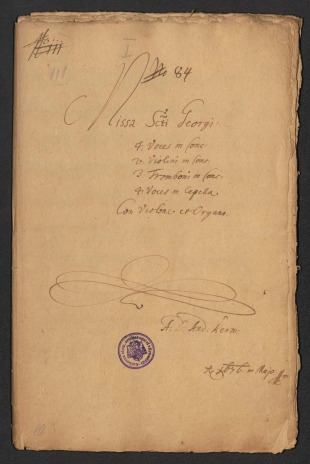 84
Missa Scti Georgi.
4. Voces in Conc.
2. Violini in Conc.
3. Tromboni in Conc.
4. Voces in Capella.
Con Violone et Organo.
A. D. And.
in Majo